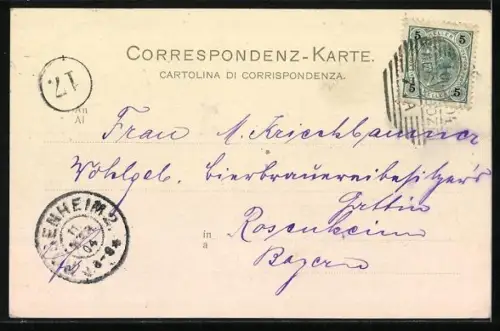 CORRESPONDENZ-KARTE.
CARTOLINA DI CORRISPONDENZA.
17
An
Al
5 5
5 5
Frau M. Kriechbaumer
Wohlgeb. bierbrauereibesitzer's
Gattin
in
a
Rosenheim
Bayern
ROSENHEIM 2.
11
04